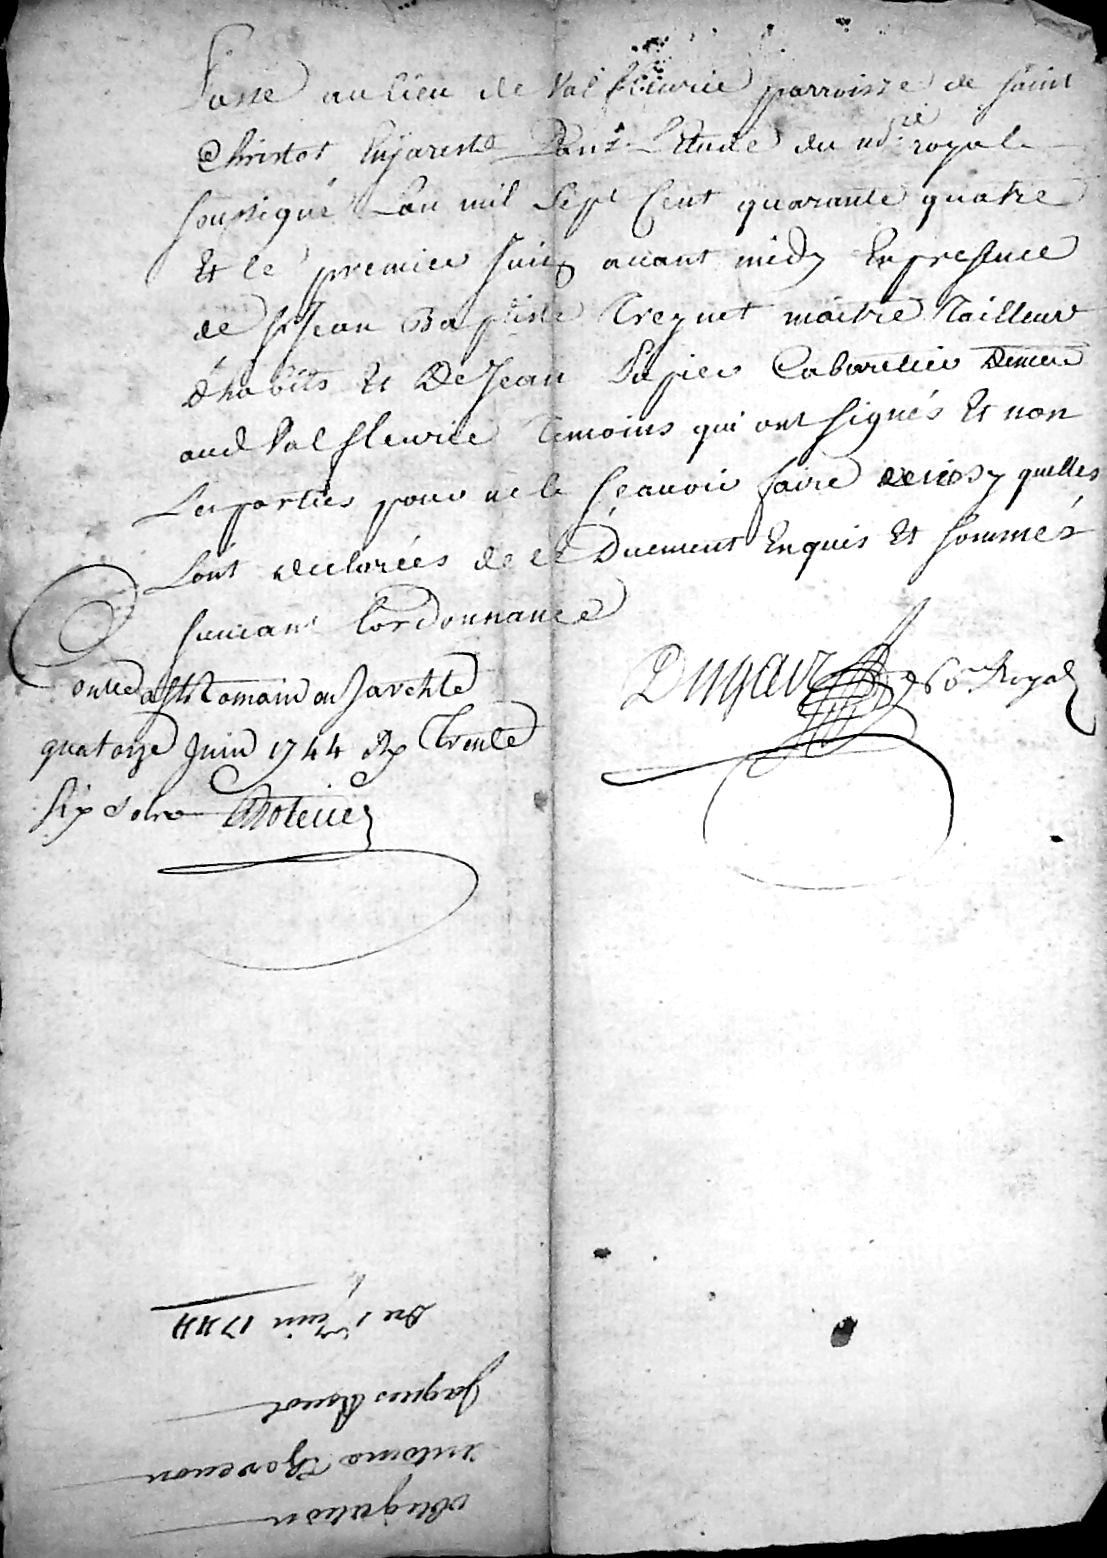 Passé au lieu de Val fleurie parroisse de saint
Christot En Jarest Dans Letude du no.re royal
soussigné Lan mil Sept Cent quarante quatre
Et le premier Juin avant midy En presence
de Sr Jean Baptiste maitre Tailleur
D'habits Et De Jean Cabaretier Demeu
aud Val fleurie Temoins qui ont signés Et non
Les parties pour ne le sçavoir faire quelles
sont declarées de ce Duement Enquis Et sommés
suivant Lordonnance
Dugas no.re Royal
Con.lé a St Romain en Jarehte
quatorze Juin 1744 Rx Trente
six sols
Du 1er Juin 1744
Jacques
Antoine
obligation